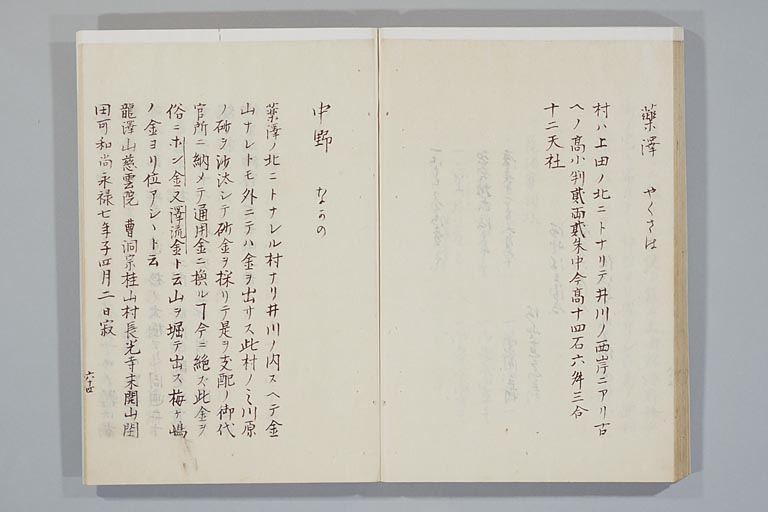 薬澤　やくさは
村ハ上田ノ北ニトナリテ井川ノ西岸ニアリ古
ヘノ高小判貳両貳朱中今高十四石六舛三合
十二天社
中野　なかの
薬澤ノ北ニトナレル村ナリ井川ノ内スヘテ金
山ナレトモ外ニテハ金ヲ出サス此村ノミ川原
ノ砂ヲ沙汰シテ砂金ヲ採リテ是ヲ支配ノ御代
官所ニ納メテ通用金ニ換ルヿ今ニ絶ズ此金ヲ
俗ニホン金又澤流金ト云山ヲ堀テ出ス梅ヶ嶋
ノ金ヨリ位アシヽト云
龍澤山慈雲院　曹洞宗桂山村長光寺末開山闇
田可和尚永禄七年子四月二日寂
六十四